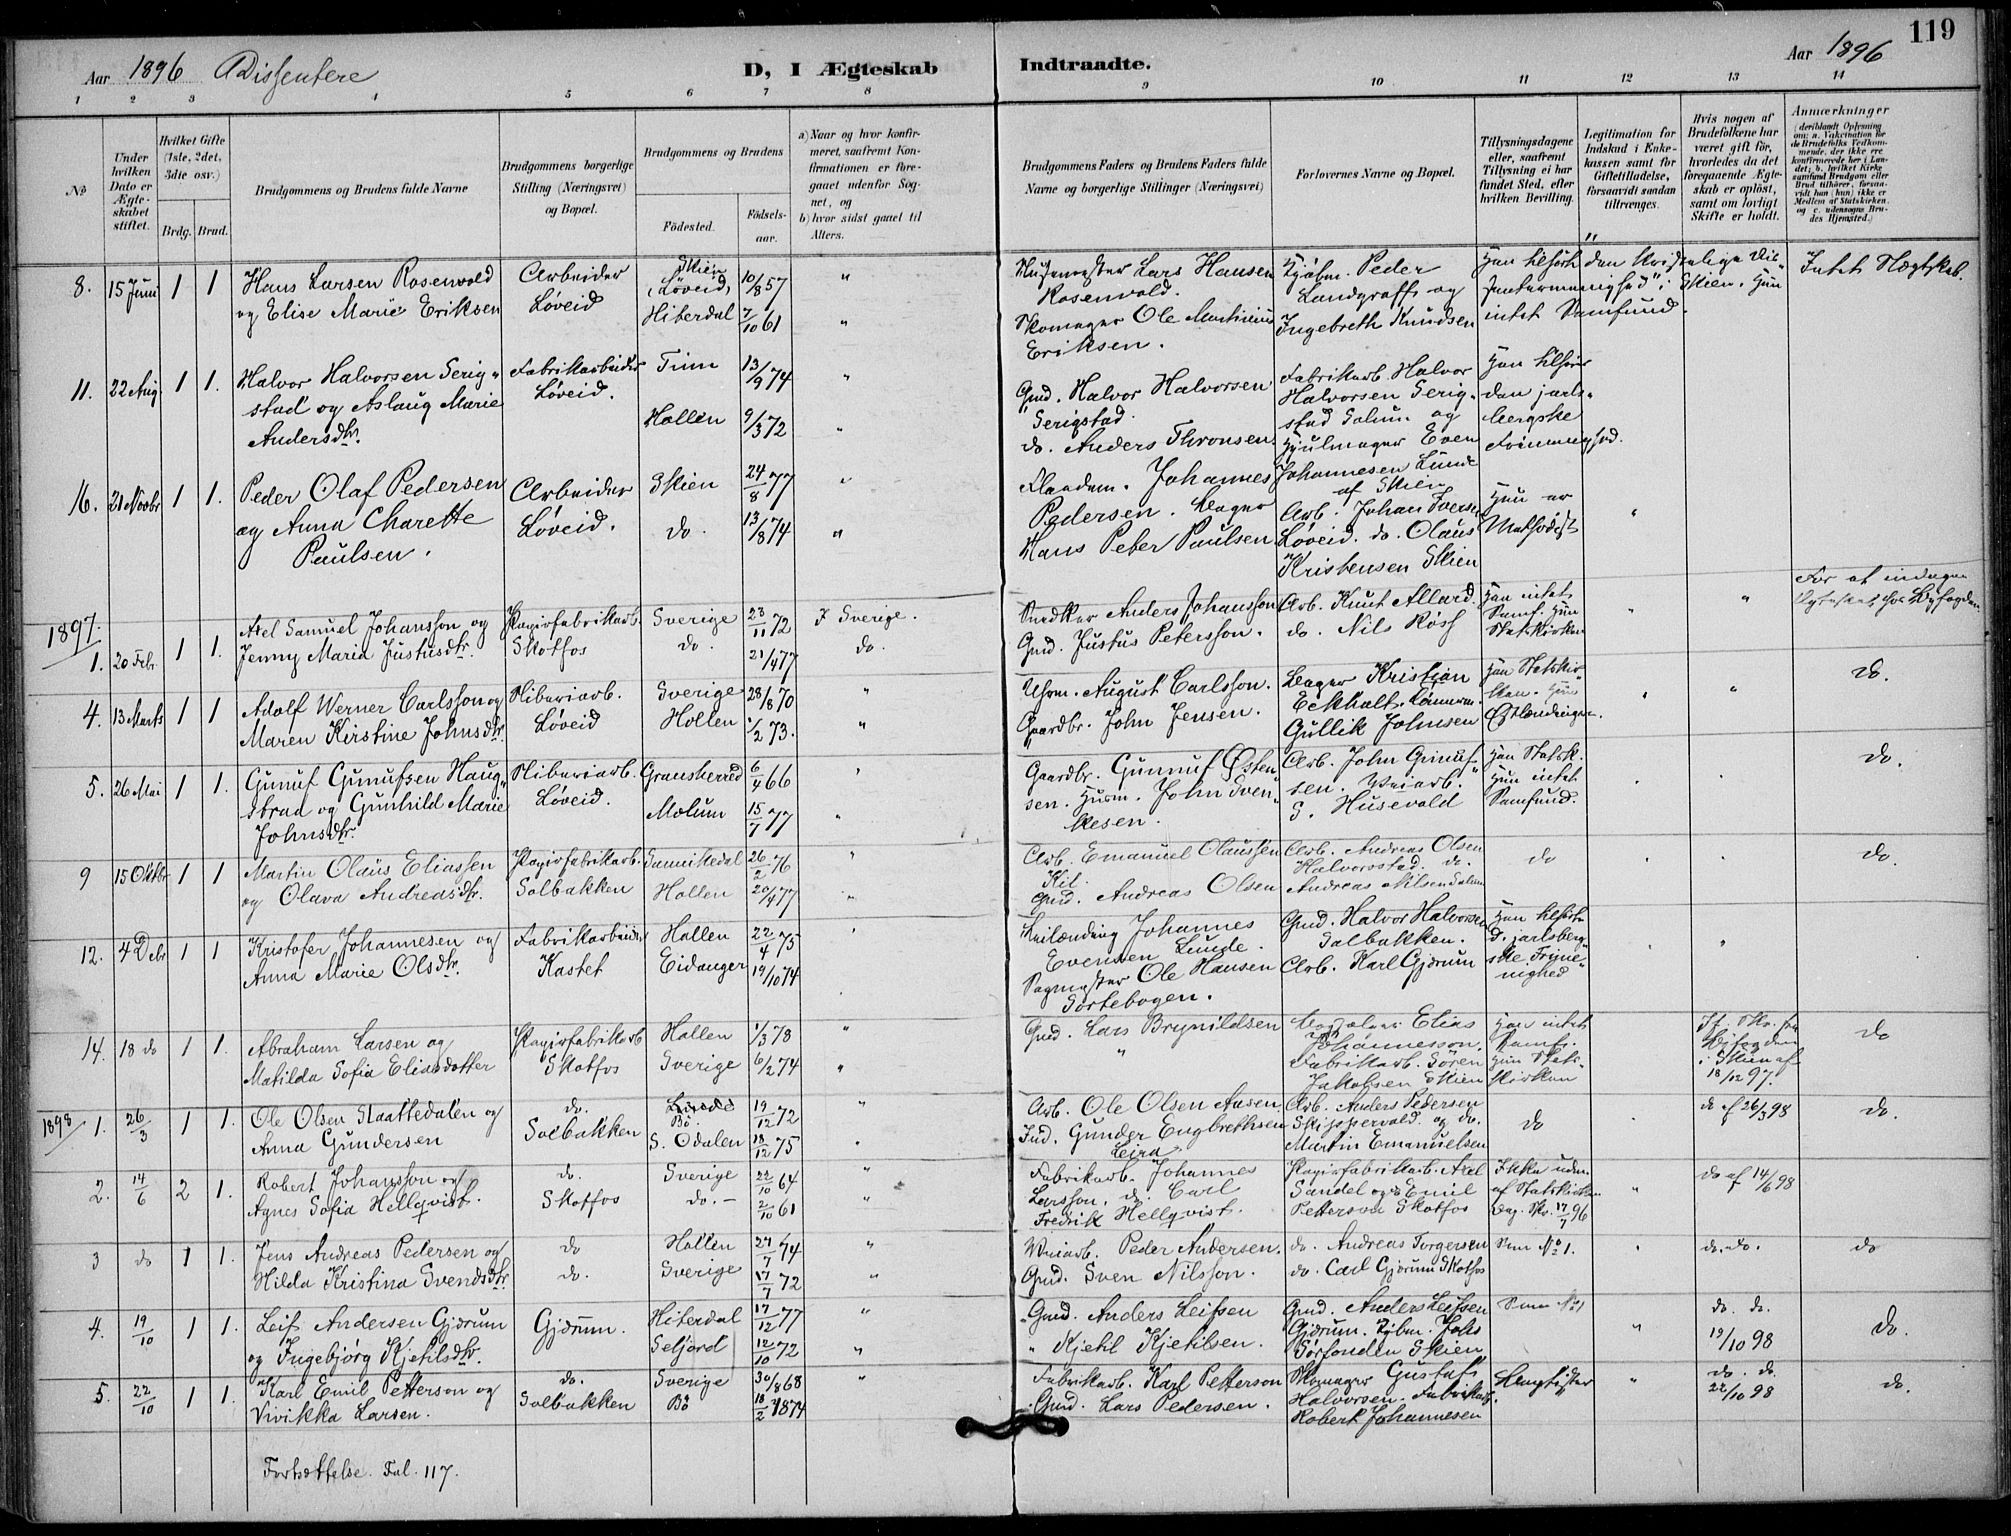 119
Aar 1896 Dissentere
D, I Ægteskab Indtraadte.
Aar 1896
1 2 3 4 5 6 7 8 9 10 11 12 13 14
No
Under hvilken Dato er Ægteskabet stiftet.
Hvilket Gifte (1ste, 2det, 3die osv.)
Brdg. Brud.
Brudgommens og Brudens fulde Navne
Brudgommens borgerlige Stilling (Næringsvei) og Bopæl.
Brudgommens og Brudens
Fødested. Fødselsaar.
a) Naar og hvor konfirmeret, saafremt Konfirmationen er foregaaet udenfor Sognet, og
b) hvor sidst gaaet til Alters.
Brudgommens Faders og Brudens Faders fulde Navne og borgerlige Stillinger (Næringsvei)
Forlovernes Navne og Bopæl.
Tillysningsdagene eller, saafremt Tillysning ei har fundet Sted, efter hvilken Bevilling.
Legitimation for Indskud i Enkekassen samt for Giftetilladelse, forsaavidt saadan tiltrænges.
Hvis nogen af Brudefolkene har været gift før, hvorledes da det foregaaende Ægteskab er opløst, samt om lovligt Skifte er holdt.
Anmærkninger
(deriblandt Oplysning om: a. Vakcination for de Brudefolks Vedkommende, der ikke ere konfirmerede her i Landet; b. hvilket Kirkesamfund Brudgom eller Brud tilhører, forsaavidt han (hun) ikke er Medlem af Statskirken, og c. udensogns Brudes Hjemsted.)
8. 15 Juni 1 1
Hans Larsen Rosenvold
og Elise Marie Eriksen
Arbeider
Løveid
Skien
(Løveid) 10/8 57 "
Hiterdal 7/10 61 "
Lars Hansen
Rosenvold.
Skomager Ole Martinius
Eriksen.
Kjøbm. Peder
Landgraff og
Ingebreth Knudsen
Han tilhørte den kristelige Dissentermenighed i Skien. Hun
intet Samfund.
Intet Slægtskab
11. 22 Aug. 1 1.
Halvor Halvorsen Serigstad og Aslaug Marie
Andersdtr.
Fabrikarbeider
Løveid.
Tinn 13/9 74 "
Hollen 9/3 72 "
Gmd. Halvor Halvorsen
Serigstad.
do. Anders Thronsen
Fabrikarb. Halvor
Halvorsen Serigstad Solum. og
Hjulmager Even
Johannesen Lunde
af Skien
Han tilhører
den jarlsbergske
Frimenighed.
16. 21 Novbr 1 1.
Peder Olaf Pedersen
og Anna Charette
Paulsen.
Arbeider
Løveid.
Skien 24/8 77 "
do. 13/8 74 "
Johannes
Pedersen. Bager
Hans Peter Paulsen
Arb. Johan Iversen
Løveid. do. Olaus
Kristensen Skien
Hun er
Methodist
"
1897.
1. 20 Febr. 1 1.
Axel Samuel Johansson og
Jenny Maria Justusdtr.
Papirfabrikarb.
Skotfos
Sverige 23/11 72 I Sverige.
do. 21/4 77 do.
Snedker Anders Johansson
Gmd. Justus Petersson.
Arb. Knut Allard
do. Nils Röss
Han intet
Samf. Hun
Statskirken
" "
For at indegaa
Ægteskab hos Byfogden
4. 13 Marts 1 1
Adolf Werner Carlsson og
Maren Kirstine Johnsdtr.
Sliberiarb.
Løveid
Sverige 28/8 70 "
Hollen 1/2 73. "
August Carlsson.
Gaardbr. John Jensen.
Bager Kristian
Eckholt.
Gullik Johnsen
Han Statskirken. Hun
" "
do.
5. 26 Mai 1 1.
Gunuf Gunufsen Haugstrad og Gunhild Marie
Johnsdtr.
Sliberiarb.
Løveid.
Gransherred 6/4 66 "
Molum 15/7 77 "
Gaardbr. Gunnuf Østensen. Husm. John Svenkesen.
Arb. John Gunufsen.
S. Husevold
Han Statsk.
Hun intet
Samfund.
do.
9 15 Oktbr 1 1
Martin Olaus Eliassen
og Olava Andreasdtr.
Papirfabrikarb.
Solbakken
Sannikedal 26/2 76 "
Hollen 20/4 77 "
Arb. Emanuel Olaussen
Kil.
Gmd. Andreas Olsen
Arb. Andreas Olsen
Halvorsstad. do.
Andreas Nilsen Solum
do
do.
12. 4 Debr 1 1
Kristofer Johannesen og
Anna Marie Olsdtr.
Fabrikarbeider
Kastet
Hollen 22/4 75 "
Eidanger 19/10 74
Leilænding Johannes
Evensen Lunde.
Sagmester Ole Hansen
Sortebogen.
Gmd. Halvor Halvorsen
Solbakken.
Arb. Karl Gjørum
Han tilhørte
D. jarlsbergske Frimenighed
14. 18 do 1 1.
Abraham Larsen og
Matilda Sofia Eliasdotter
Papirfabrikarb
Skotfos
Hollen 1/3 78 "
Sverige 6/2 74 "
Gmd. Lars Brynildsen
"
Elias
Johannesson.
Fabrikarb. Sören
Jakobsen Skien
Han intet
Samf.
Hun Statskirken
If. Skr. fra
Byfogden
i Skien af
18/12 97.
do
1898
1. 26/3 1 1.
Ole Olsen Slaattedalen og
Anna Gundersen
do.
Solbakken
Bö 19/12 72 "
S. Odalen 18/12 75 "
Arb. Ole Olsen Aasen
Ind. Gunder Engbrethsen
Leira
Arb. Anders Pedersen
Skippervold. og do.
Martin Emanuelsen
do
do af 26/3 98
do.
2. 14/6 2 1.
Robert Johansson og
Agnes Sofia Hellqvist.
do.
Skotfos
Sverige 22/10 64 "
do. 2/10 61 "
Fabrikarb. Johannes
Larsson, do. Carl
Fredrik Hellqvist.
Papirfabrikarb. Axel
Sandel og do Emil
Petterson Skotfos
Ikke uden
af Statskirken
17/7 96
"
do af 14/6 98
3 do 1 1.
Jens Andreas Pedersen og
Hilda Kristina Svendsdtr.
do
do.
Hollen 27/7 74 "
Sverige 17/7 72 "
Peder Andersen.
Gmd. Sven Nilsson.
do. Andreas Torgersen
do. Carl Gjörum Skotfos
Som No 1.
do. do.
do
4. 19/10 1 1.
Leif Andersen Gjørum
og Ingebjørg Kjetilsdtr.
Gjørum.
Hiterdal 17/12 77 "
Seljord 12/10 72 "
Gmd. Anders Leifsen
" Kjetil Kjetilsen.
Gmd. Anders Leifsen
Gjørum. Kjøbm. Johs
Sørsonden Skien
Som No 1
"
do. do.
19/10 98
do.
5. 22/10 1 1.
Karl Emil Petterson og
Vivikka Larsen.
do.
Solbakken
Sverige 30/8 68 "
Bö 18/2 1874
Fabrikarb. Karl Petterson
Gmd. Lars Pedersen.
Skomager Gustaf
Halvorsen. Fabrikarb.
Robert Johannesen
"
do. do.
22/10 98
do.
Fortsættelse. Fol. 117.